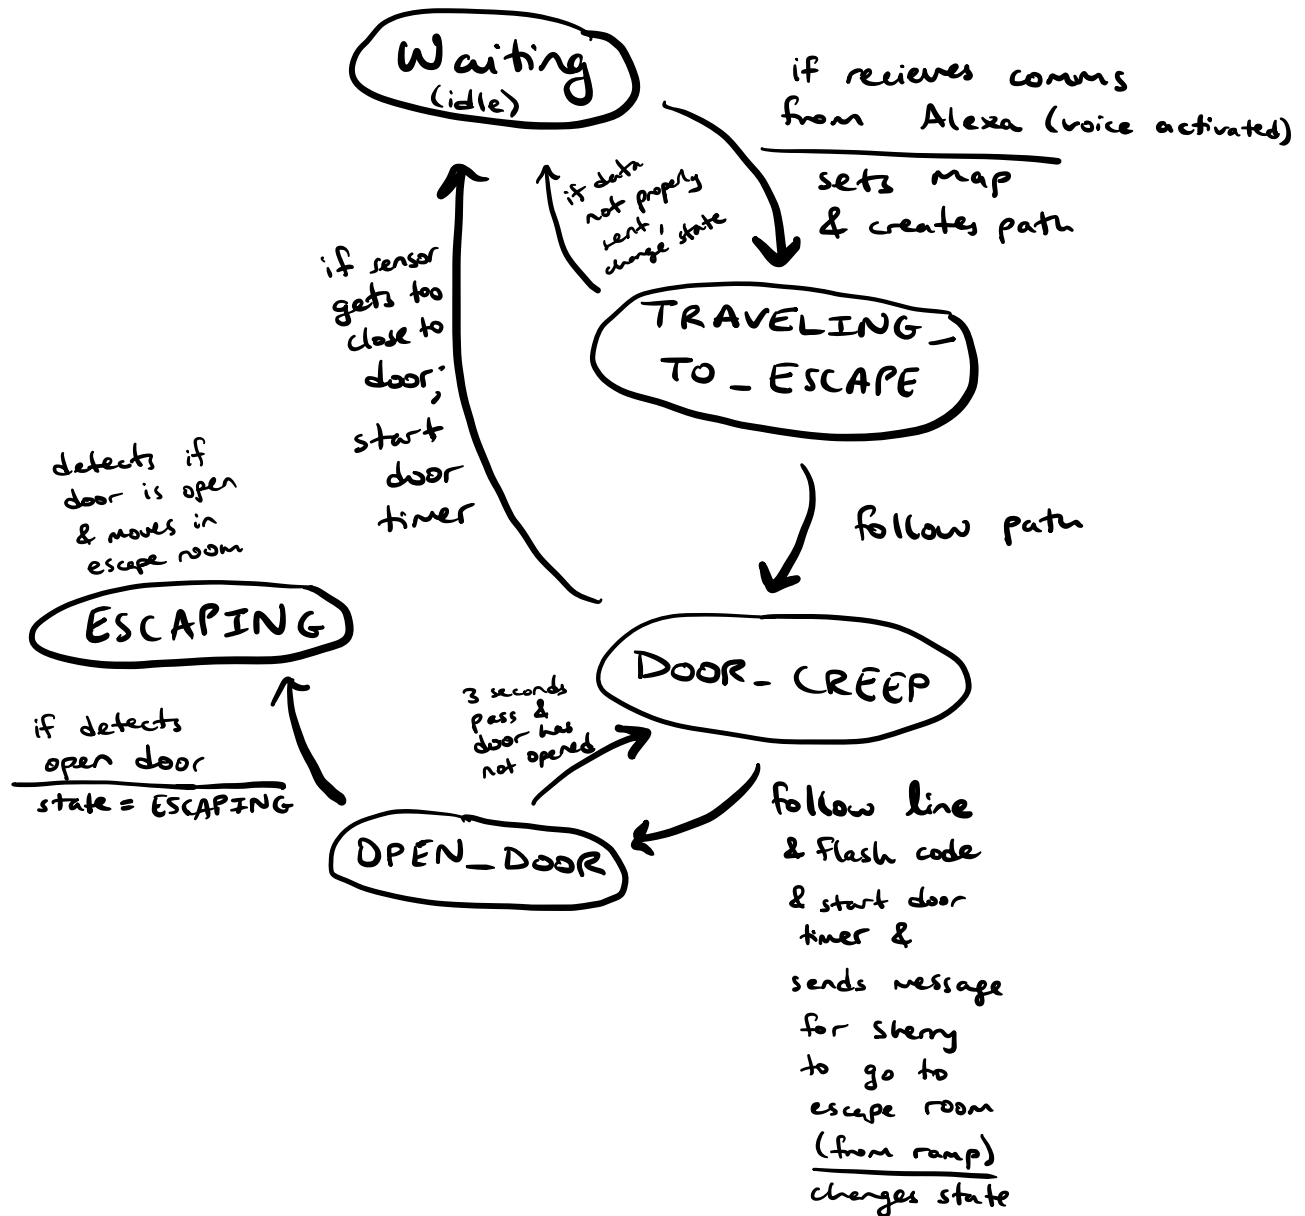 Waiting
(idle)
if recieves comms
from Alexa (voice activated)
sets map
& creates path
if data
not properly
sent,
change state
TRAVELING_
TO_ESCAPE
if sensor
gets too
close to
door;
start
door
timer
follow path
detects if
door is open
& moves in
escape room
ESCAPING
DOOR_CREEP
3 seconds
pass &
door has
not opened
if detects
open door
state = ESCAPING
OPEN_DOOR
follow line
& flash code
& start door
timer &
sends message
for sherry
to go to
escape room
(from ramp)
changes state